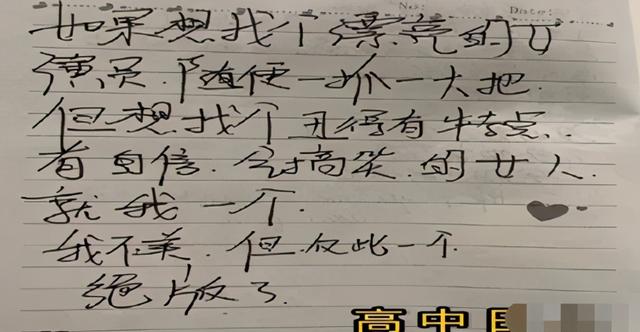 No: Date:
如果想找个漂亮的女
演员.随便一抓一大把.
但想找个丑得有特点.
有自信.会搞笑.的女人.
就我一个.
我不美.但仅此一个.
绝版了.
高中